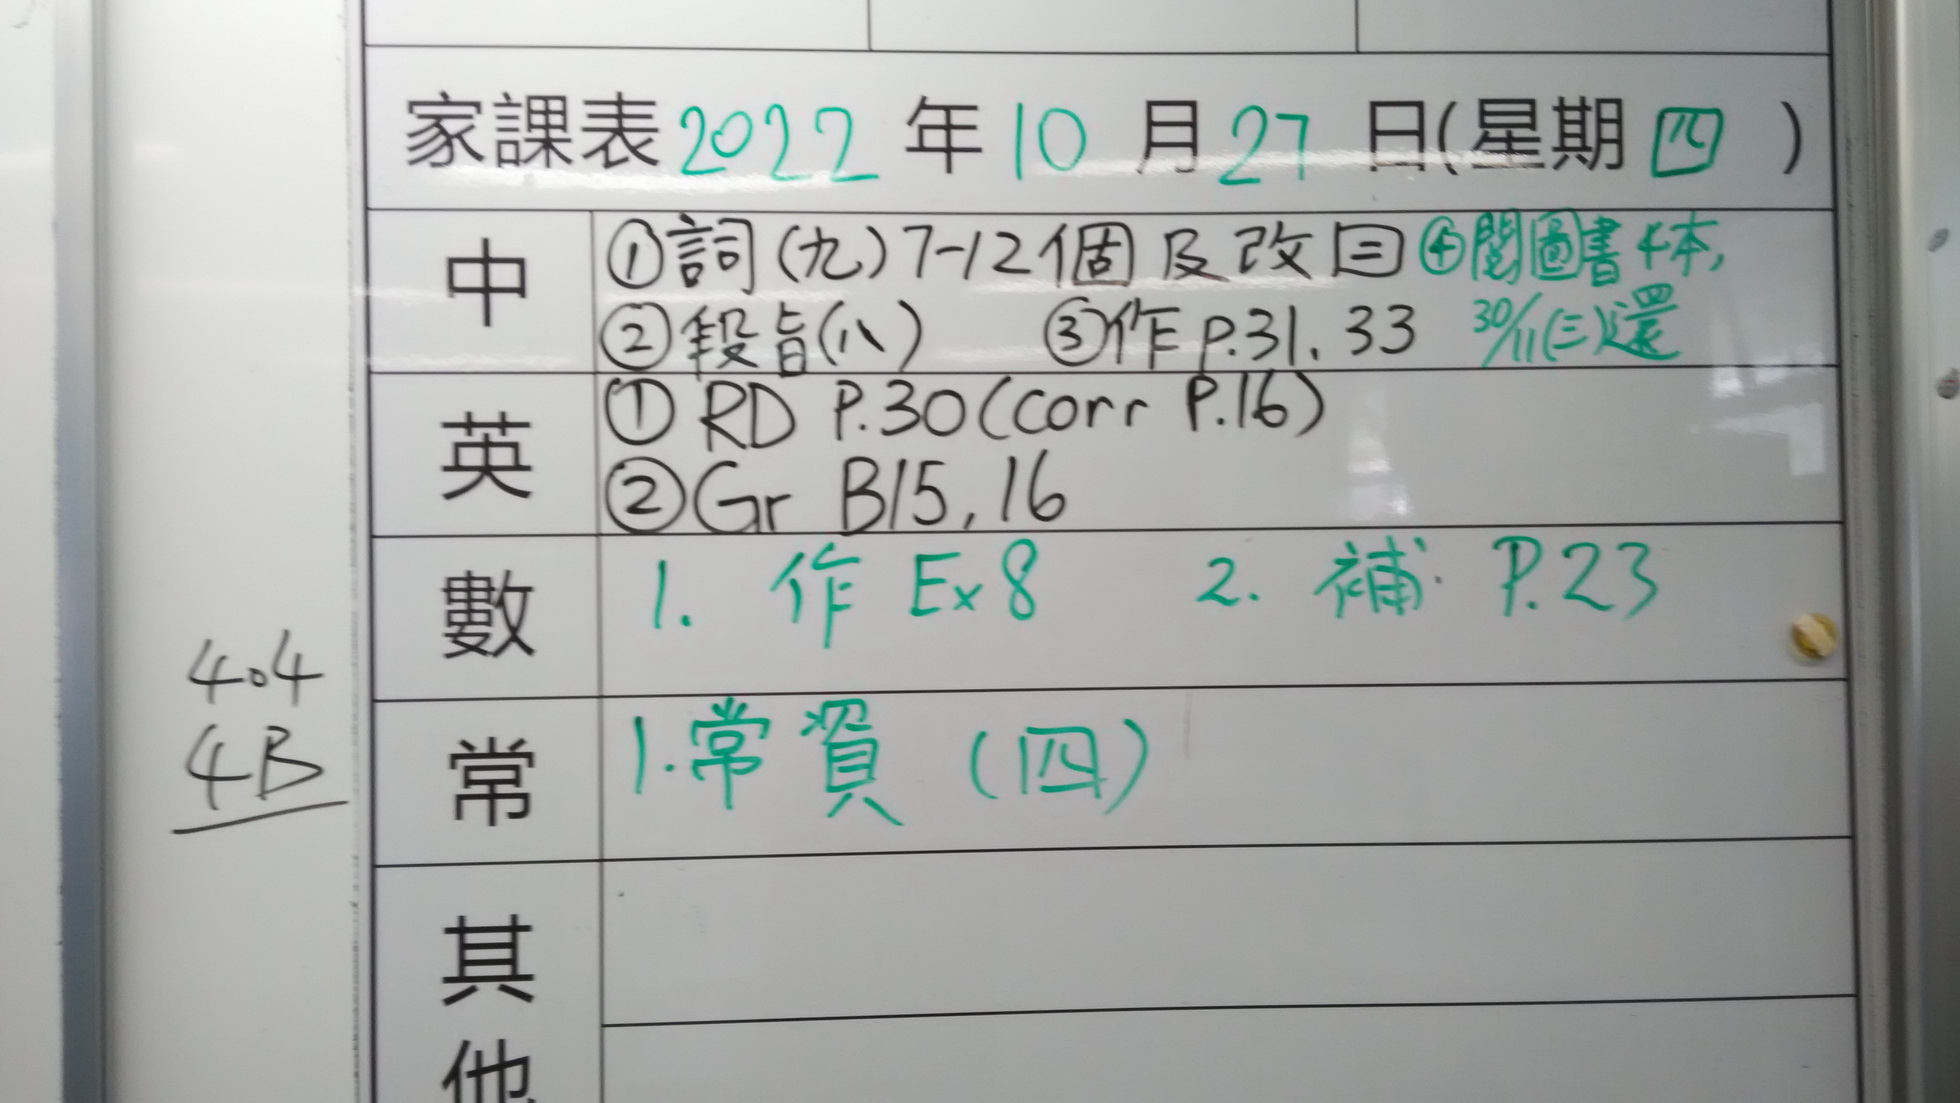 家課表 2022 年 10 月 27 日(星期 四 )
中 ①詞(九)7-12個及改 ④閱圖書4本,
②段旨(八) ③作P.31, 33 30/11(三)還
英 ① RD P.30(corr P.16)
② Gr B15, 16
數 1. 作 Ex 8 2. 補 P.23
常 1. 常資 (四)
其他
404
4B